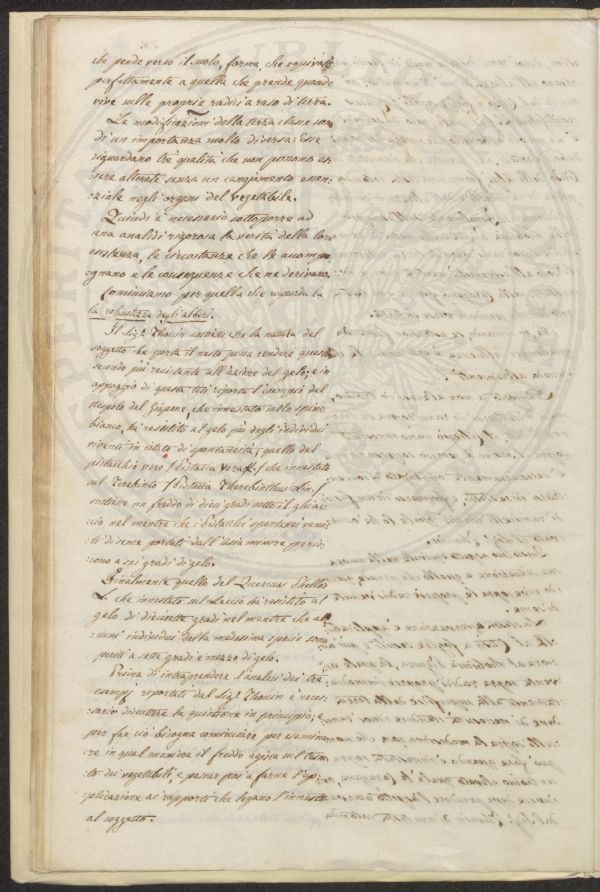 che pende verso il suolo, forma, che equivale
perfettamente a quella che prende quando
vive sulle proprie radici a raso di terra.
Le modificazioni della terza classe son
di un importanza molto diversa: Esse
riguardano tre qualità che non possono es
sere alterate senza un cangiamento essen:
:ziale negli organi del vegetabile.
Quindi è necessario sottoporre ad
una analisi rigorosa la verità della loro
esistenza, le circostanze che le accompa
:gnano e le conseguenze che ne derivano.
Cominciamo per quella che riguarda la
la robustezza degli alberi.
Il Sig.r Thouin sostiene che la natura del
soggetto che porta il nesto possa rendere questo
secondo più resistente all'azione del gelo; e in
appoggio di questa tesi riporta l'esempio del
nespolo del Giapone, che innestato sullo spino
bianco, ha resistito al gelo più degli individui
viventi in istato di spontaneità; quello del
pistacchio vero /Pistacia Vera L./ che innestato
sul Terebinto /Pistacia Therebinthus Lin./
sostiene un freddo di dieci gradi sotto il ghiac:
:cio nel mentre che i Pistacchi spontanei venu:
:ti di seme portati dall'Asia minore peris:
:cono a sei gradi di gelo.
Finalmente quello del Quercus Phellos
L. che innestato sul Leccio ha resistito al
gelo di diecisette gradi nel mentre che al
:cuni individui della medesima specie sono
periti a sette gradi e mezzo di gelo.
Prima di intraprendere l'analisi dei tre
esempj riportati dal Sig.r Thouin è neces:
:sario discutere la quistione in principio; e
per far ciò bisogna cominciare per esamina:
:re in qual maniera il freddo agisca sul tessu:
:to dei vegetabili, e passar poi a farne l'ap
:plicazione ai rapporti che legano l'innesto
al soggetto.